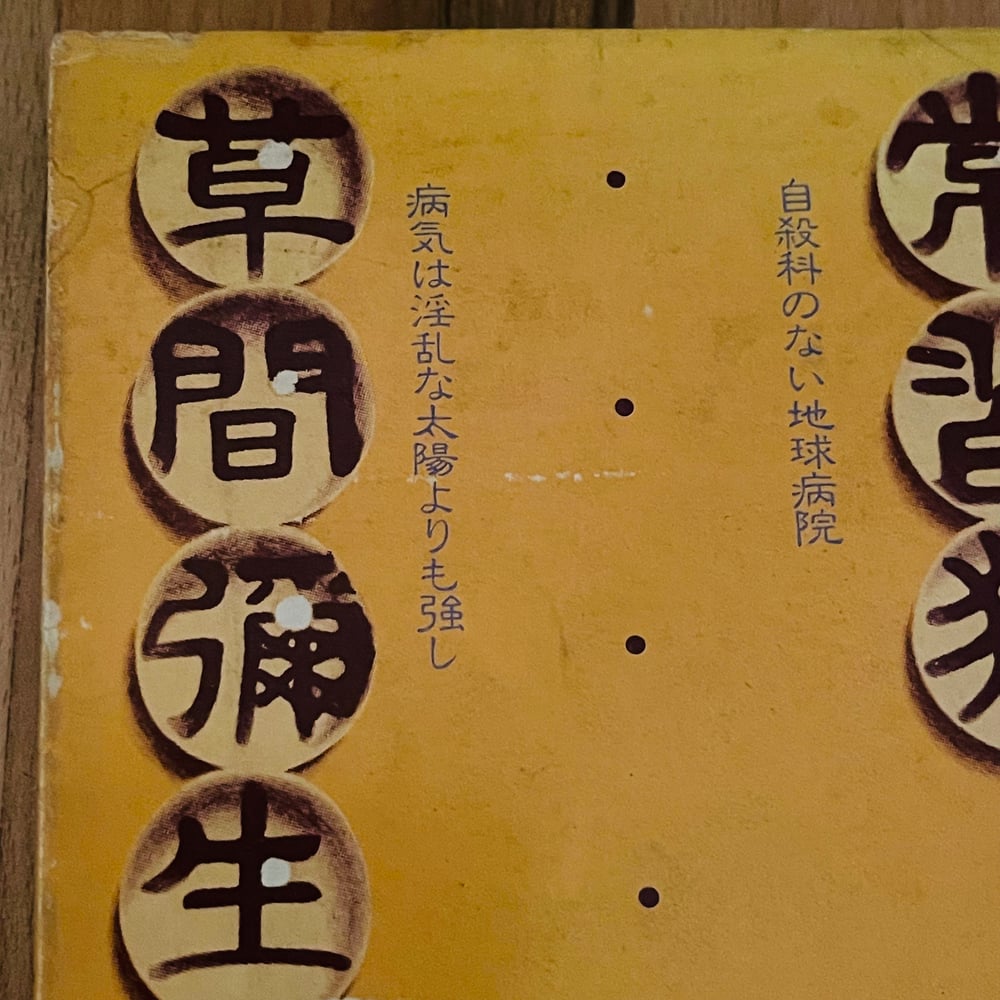 常習犯
自殺科のない地球病院
病気は淫乱な太陽よりも強し
草間彌生